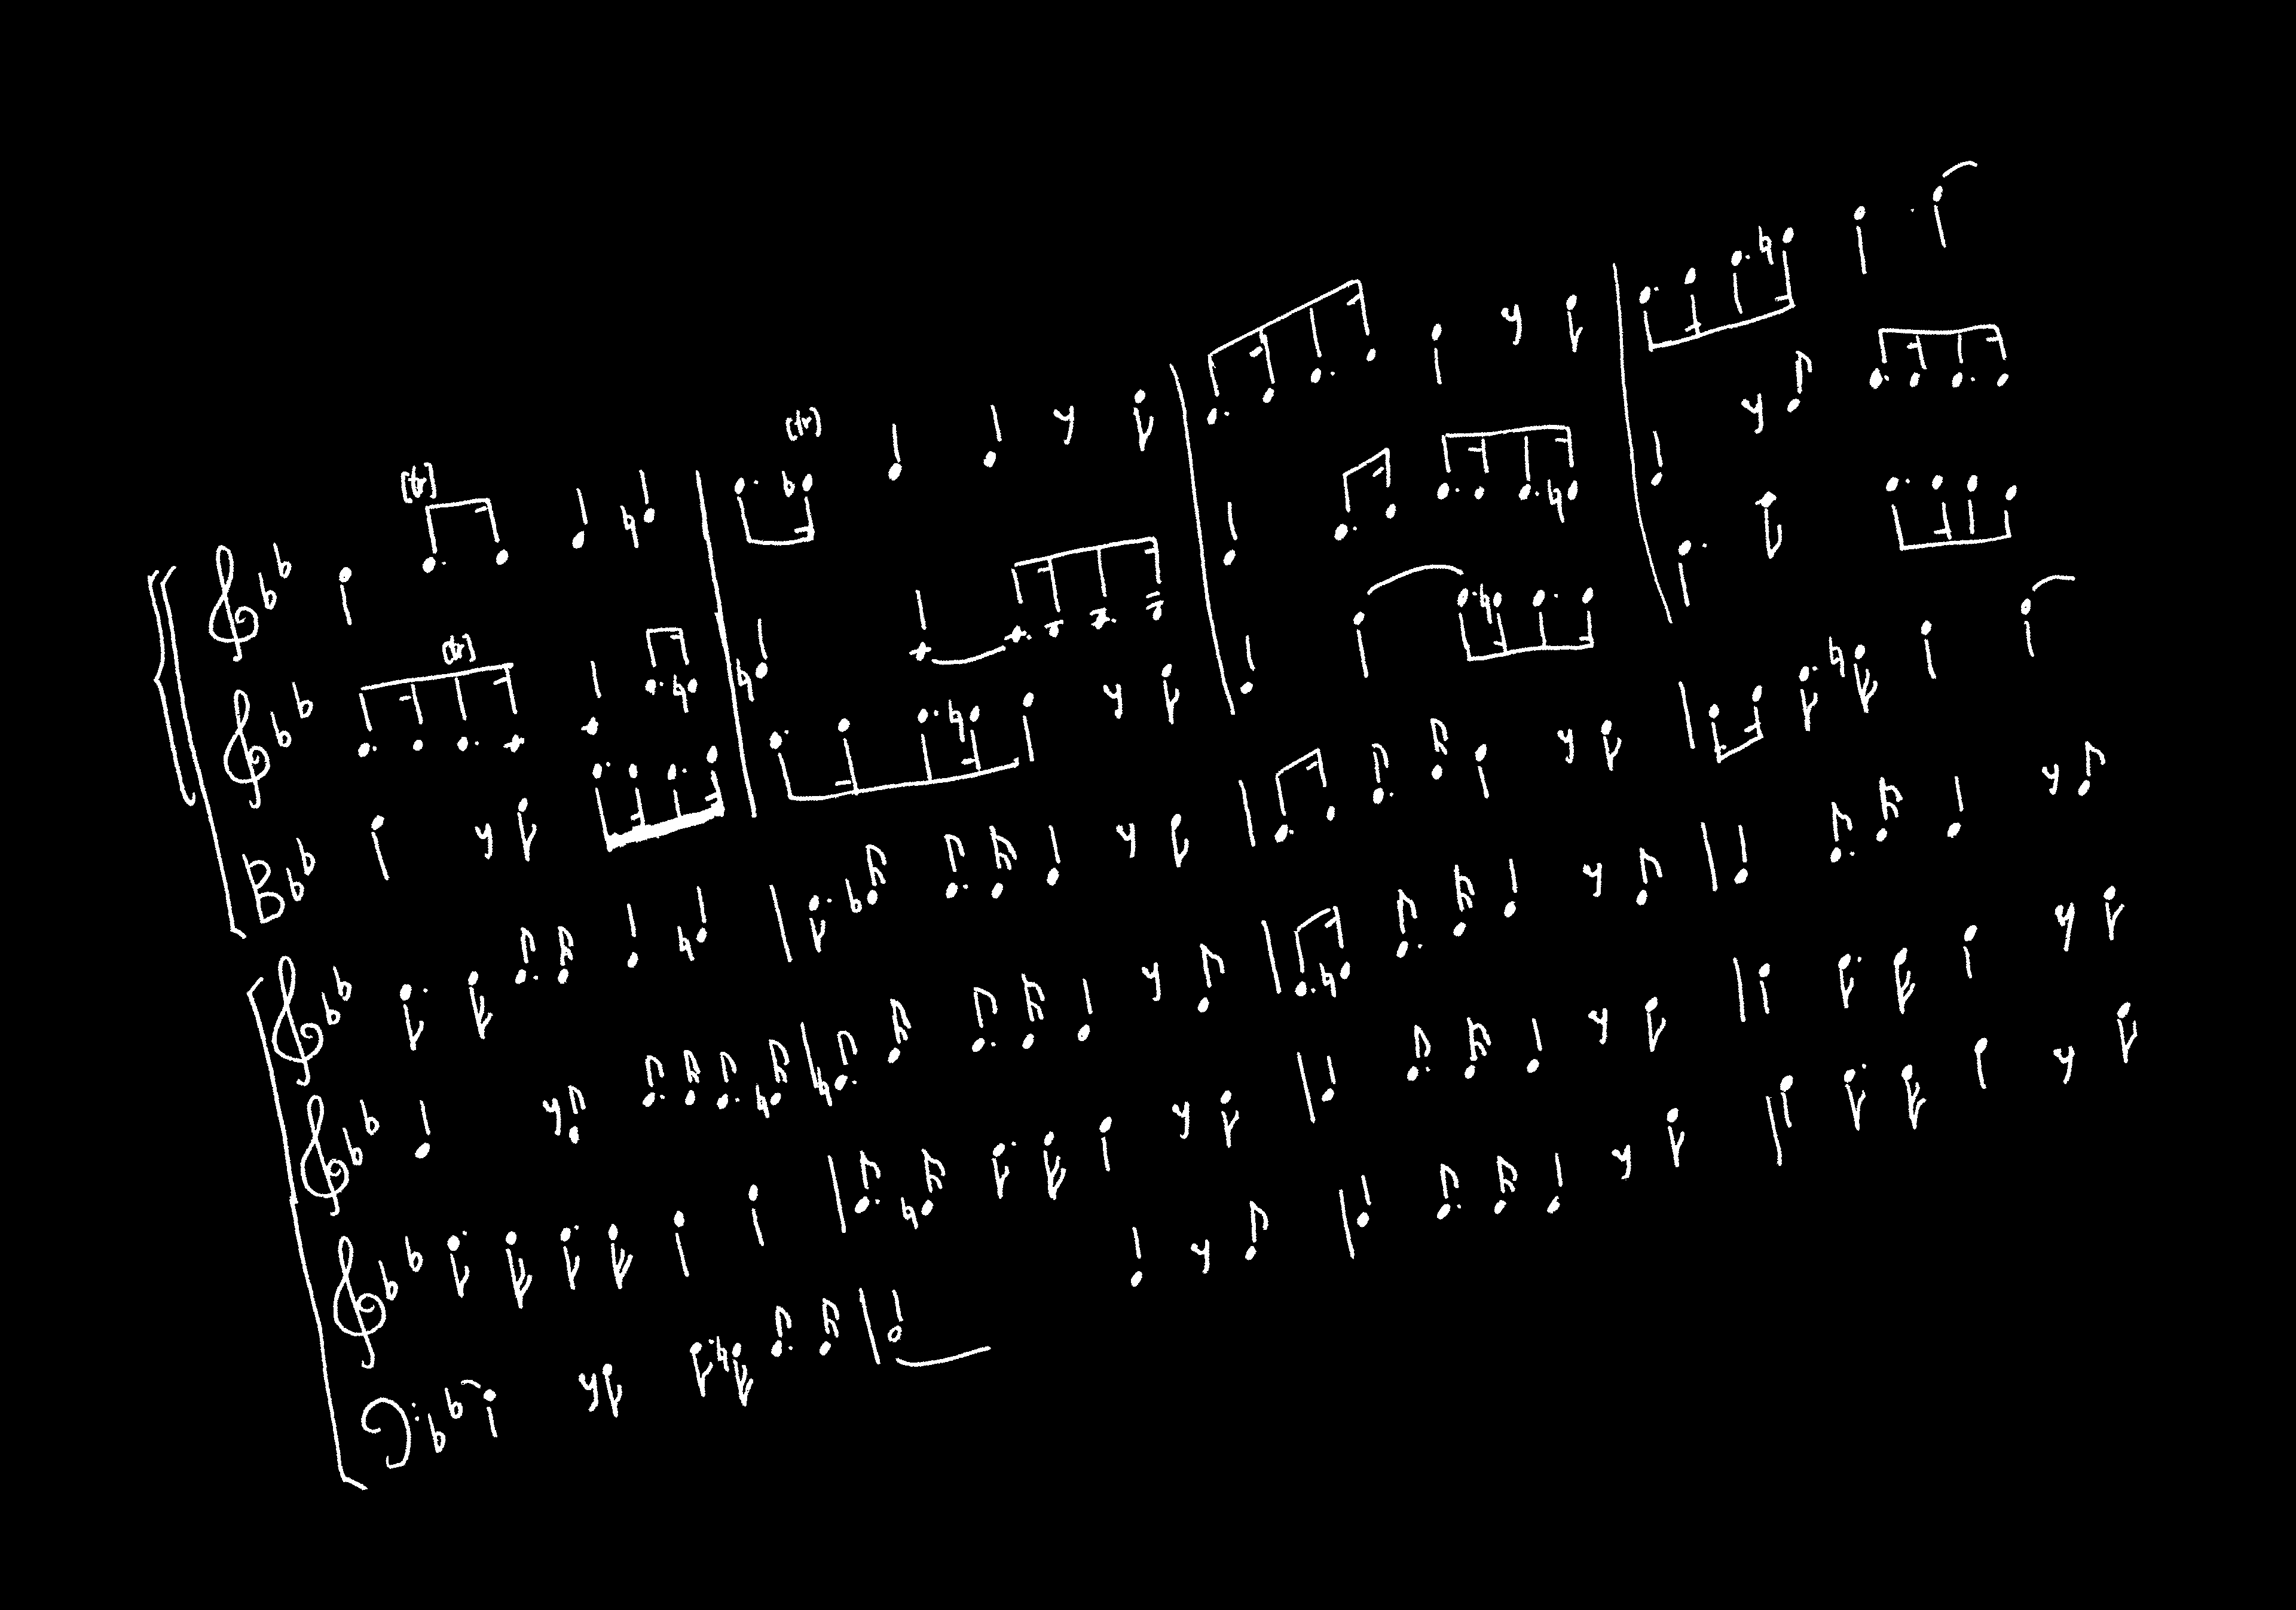 (tr)
[tr]
(tr]
B